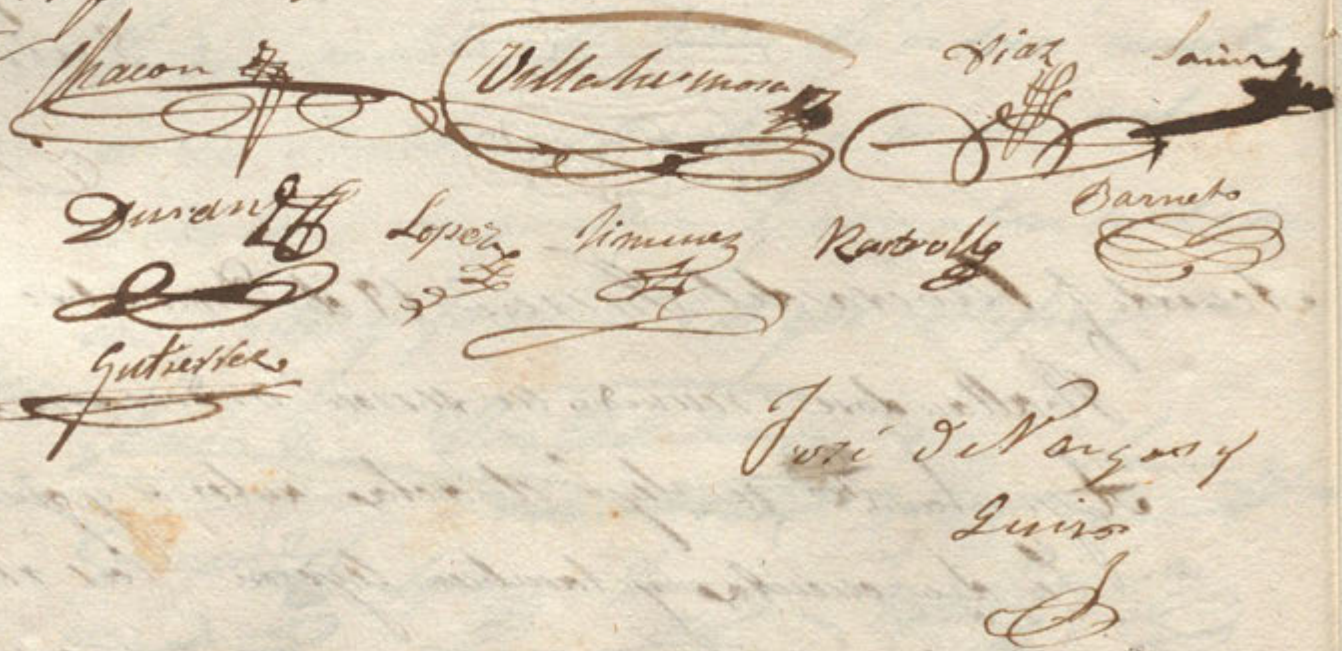 Chacon Villahermosa Diaz
Duran Lopez Jimenez Rastrollo Barneto
Gutierrez
José de Vargas y
Quiros